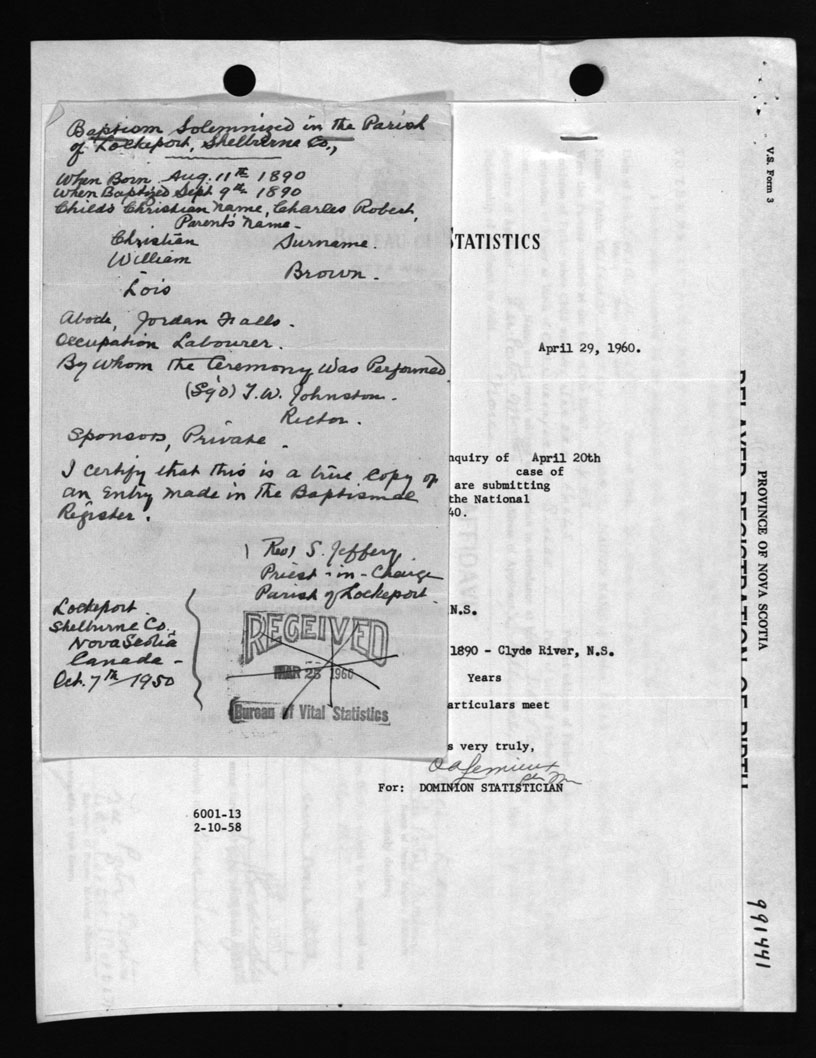 Baptism Solemnized in the Parish
of Lockeport, Shelburne Co.,
When Born Aug. 11th 1890
When Baptized Sept 9th 1890
Childs Christian name, Charles Robert,
Parents name -
Christian Surname.
William
Brown.
Lois
Abode, Jordan Falls.
Occupation Labourer.
By Whom the Ceremony Was Performed
(Sg'd) T.W. Johnston.
Rector.
Sponsors, Private.
I certify that this is a true Copy of
an Entry made in The Baptismal
Register.
S. Jeffery
Priest-in-Charge
Parish of Lockeport.
Lockeport
Shelburne Co.
Nova Scotia
Canada -
Oct. 7th/1950
RECEIVED
MAR 28 1960
Bureau of Vital Statistics
STATISTICS
April 29, 1960.
nquiry of April 20th
case of
are submitting
the National
40.
N.S.
1890 - Clyde River, N.S.
Years
articulars meet
s very truly,
For: DOMINION STATISTICIAN
6001-13
2-10-58
V.S. Form 3
PROVINCE OF NOVA SCOTIA
DELAYED REGISTRATION OF BIRTH
991441